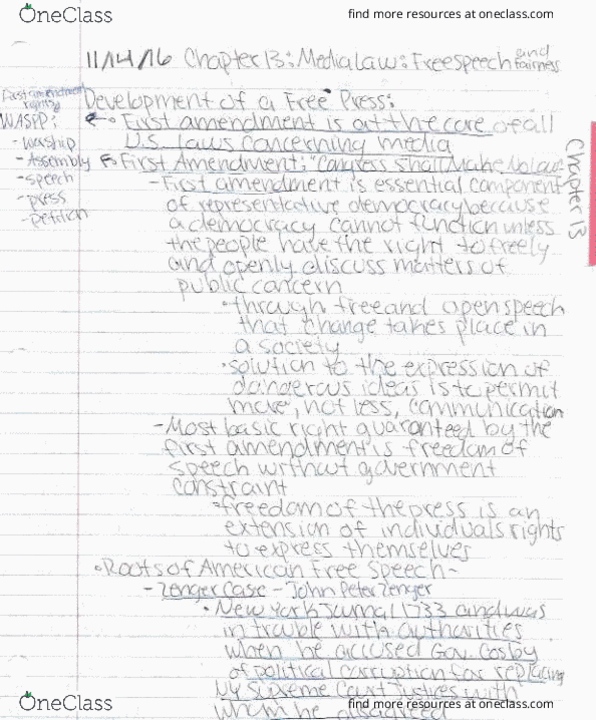 OneClass
find more resources at oneclass.com
11/14/16 Chapter 13: Media Law: Free speech and fairness
First amendment rights
WASPP:
- worship
- Assembly
- speech
- press
- petition
Chapter 13
Development of a Free Press:
First amendment is at the core of all
U.S. laws concerning media
First Amendment: "Congress Shall Make No law"
- First amendment is essential component
of representative democracy because
a democracy cannot function unless
the people have the right to freely
and openly discuss matters of
public concern
• through free and open speech
that change takes place in
a society
• solution to the expression of
dangerous ideas is to permit
more, not less, communication
- Most basic right guaranteed by the
first amendment is freedom of
speech without government
constraint
• freedom of the press is an
extension of individuals rights
to express themselves
• Roots of American Free Speech -
- Zenger Case - John Peter Zenger
• New York Journal 1733 and was
in trouble with authorities
when he accused Gov. Cosby
of political corruption for replacing
NY Supreme Court Justices with
whom he disagreed
OneClass
find more resources at oneclass.com